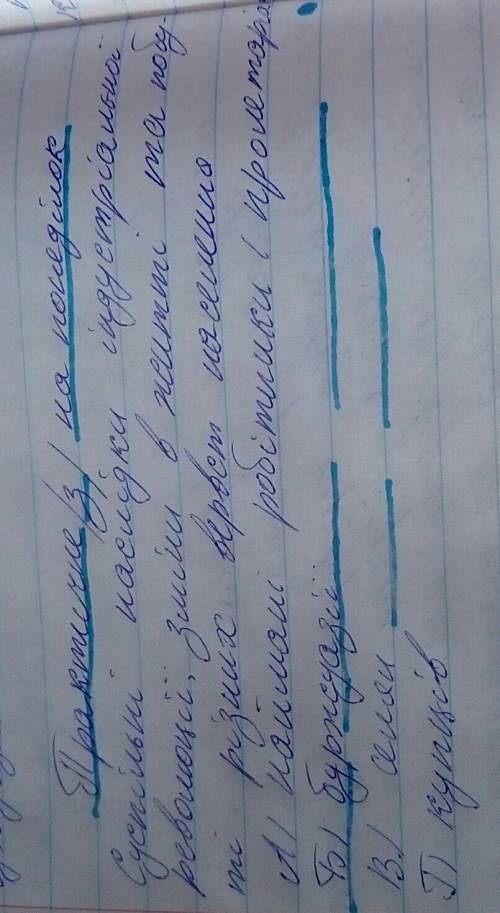 Практичне /з/ на понеділок
Суспільні наслідки індустріальної
революції, зміни в житті та побу-
ті різних верств населення
А/ наймані робітники ( пролетарі
Б/ буржуазії
В/ селян
Г) купців